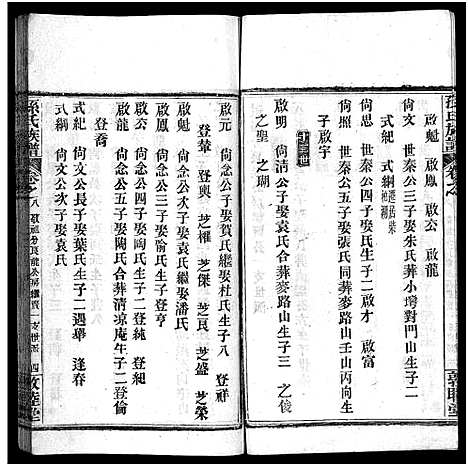 孫氏族譜 卷之
啟魁 啟鳳 啟公 啟龍
尙文 世秦公三子娶朱氏葬小塆對門山生子二
式紀 式綱
尙思 世秦公四子娶史氏生子二啟才 啟富
尙照 世秦公五子娶張氏同葬麥路山壬山丙向生
子啟宇
十三世
啟明 尙清公子娶袁氏合葬麥路山生子三 之俊
之聖 之瑚
敦睦堂
啟元 尙念公子娶賀氏繼娶杜氏生子八 登祥
登華 登輿 芝櫂 芝傑 芝良 芝盛 芝榮
啟魁 尙念公次子娶袁氏繼娶潘氏
啟鳳 尙念公三子娶喻氏生子登亨
啟公 尙念公四子娶陶氏生子二登純 登紀
啟龍 尙念公五子娶陶氏合葬清凉庵午子二登倫
登喬
式紀 尙文公長子娶葉氏生子二遇舉 逢春
式綱 尙文公次子娶袁氏
孫氏族譜 卷之八
四 敦睦堂